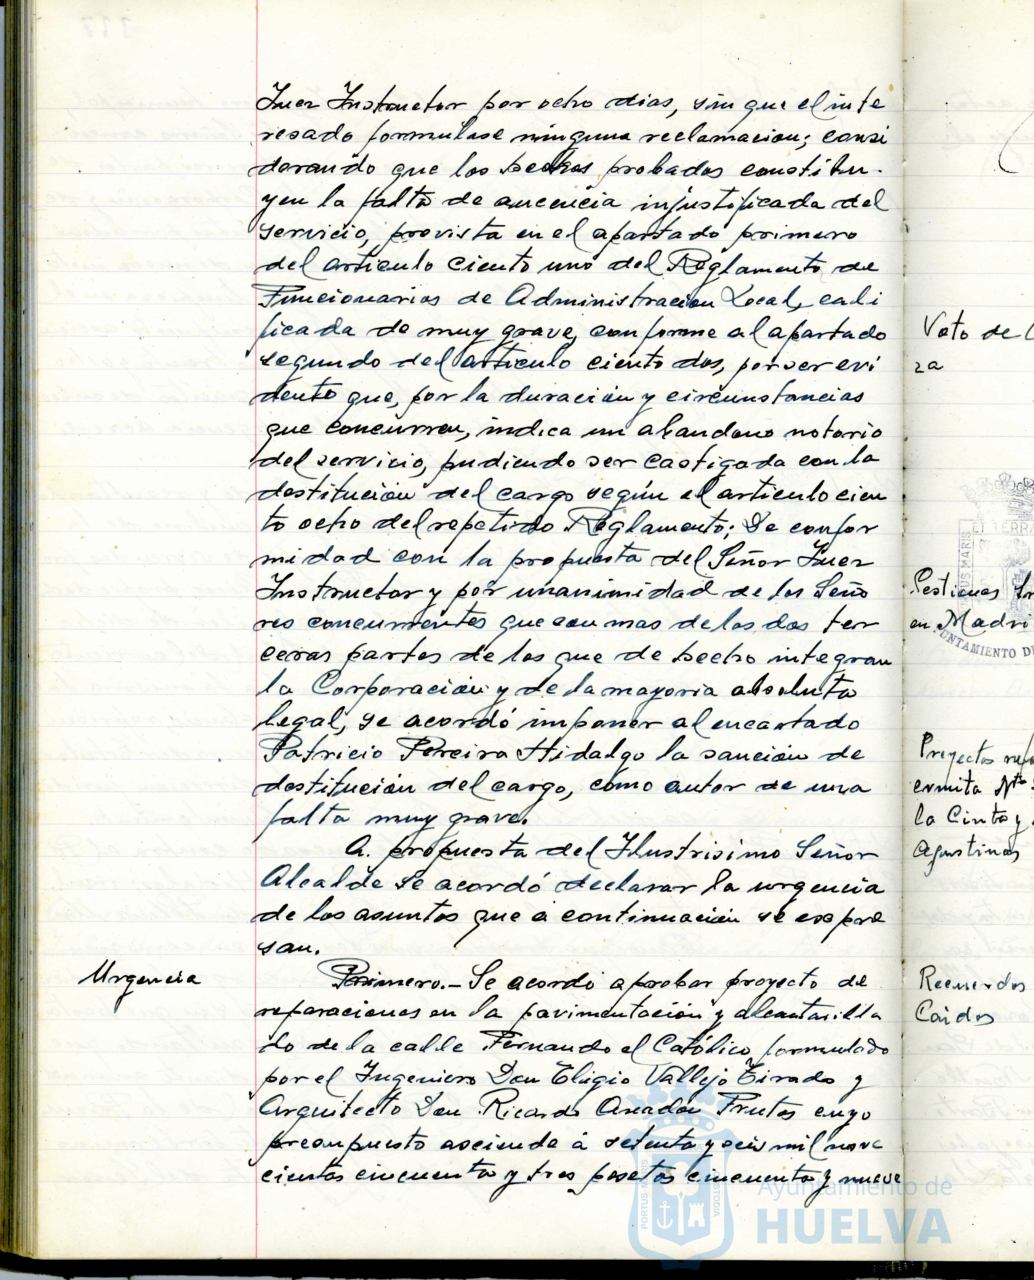 Juez Instructor por ocho dias, sin que el inte
resado formulase ninguna reclamacion; consi
derando que los hechos probados constitu-
yen la falta de ausencia injustificada del
servicio, prevista en el apartado primero
del articulo ciento uno del Reglamento de
Funcionarios de Administracion Local, cali
ficada de muy grave, conforme al apartado
segundo del articulo ciento dos, por ser evi
dente que, por la duración y circunstancias
que concurren, indica un abandono notorio
del servicio, pudiendo ser castigada con la
destitución del cargo según el articulo cien
to ocho del repetido Reglamento; De confor
midad con la propuesta del Señor Juez
Instructor y por unanimidad de los Seño
res concurrentes que son mas de las dos ter
ceras partes de los que de hecho integran
la Corporación y de la mayoria absoluta
legal, se acordó imponer al encartado
Patricio Pereira Hidalgo la sanción de
destitución del cargo, como autor de una
falta muy grave.
A propuesta del Ilustrisimo Señor
Alcalde se acordó declarar la urgencia
de los asuntos que á continuación se expre
san.
Urgencia
Primero.- Se acordó aprobar proyecto de
reparaciones en la pavimentación y alcantarilla
do de la calle Fernando el Católico, formulado
por el Ingeniero Don Eligio Vallejo Tirado y
Arquitecto Don Ricardo Anadón Frutos cuyo
presupuesto asciende á setenta y seis mil nove
cientas cincuenta y tres pesetas cincuenta y nueve
Voto de
za
Gestiones
en Madri
Proyectos
ermita Ntª
la Cinta y
Agustinas
Recuerdos
Caidos
Ayuntamiento de
HUELVA